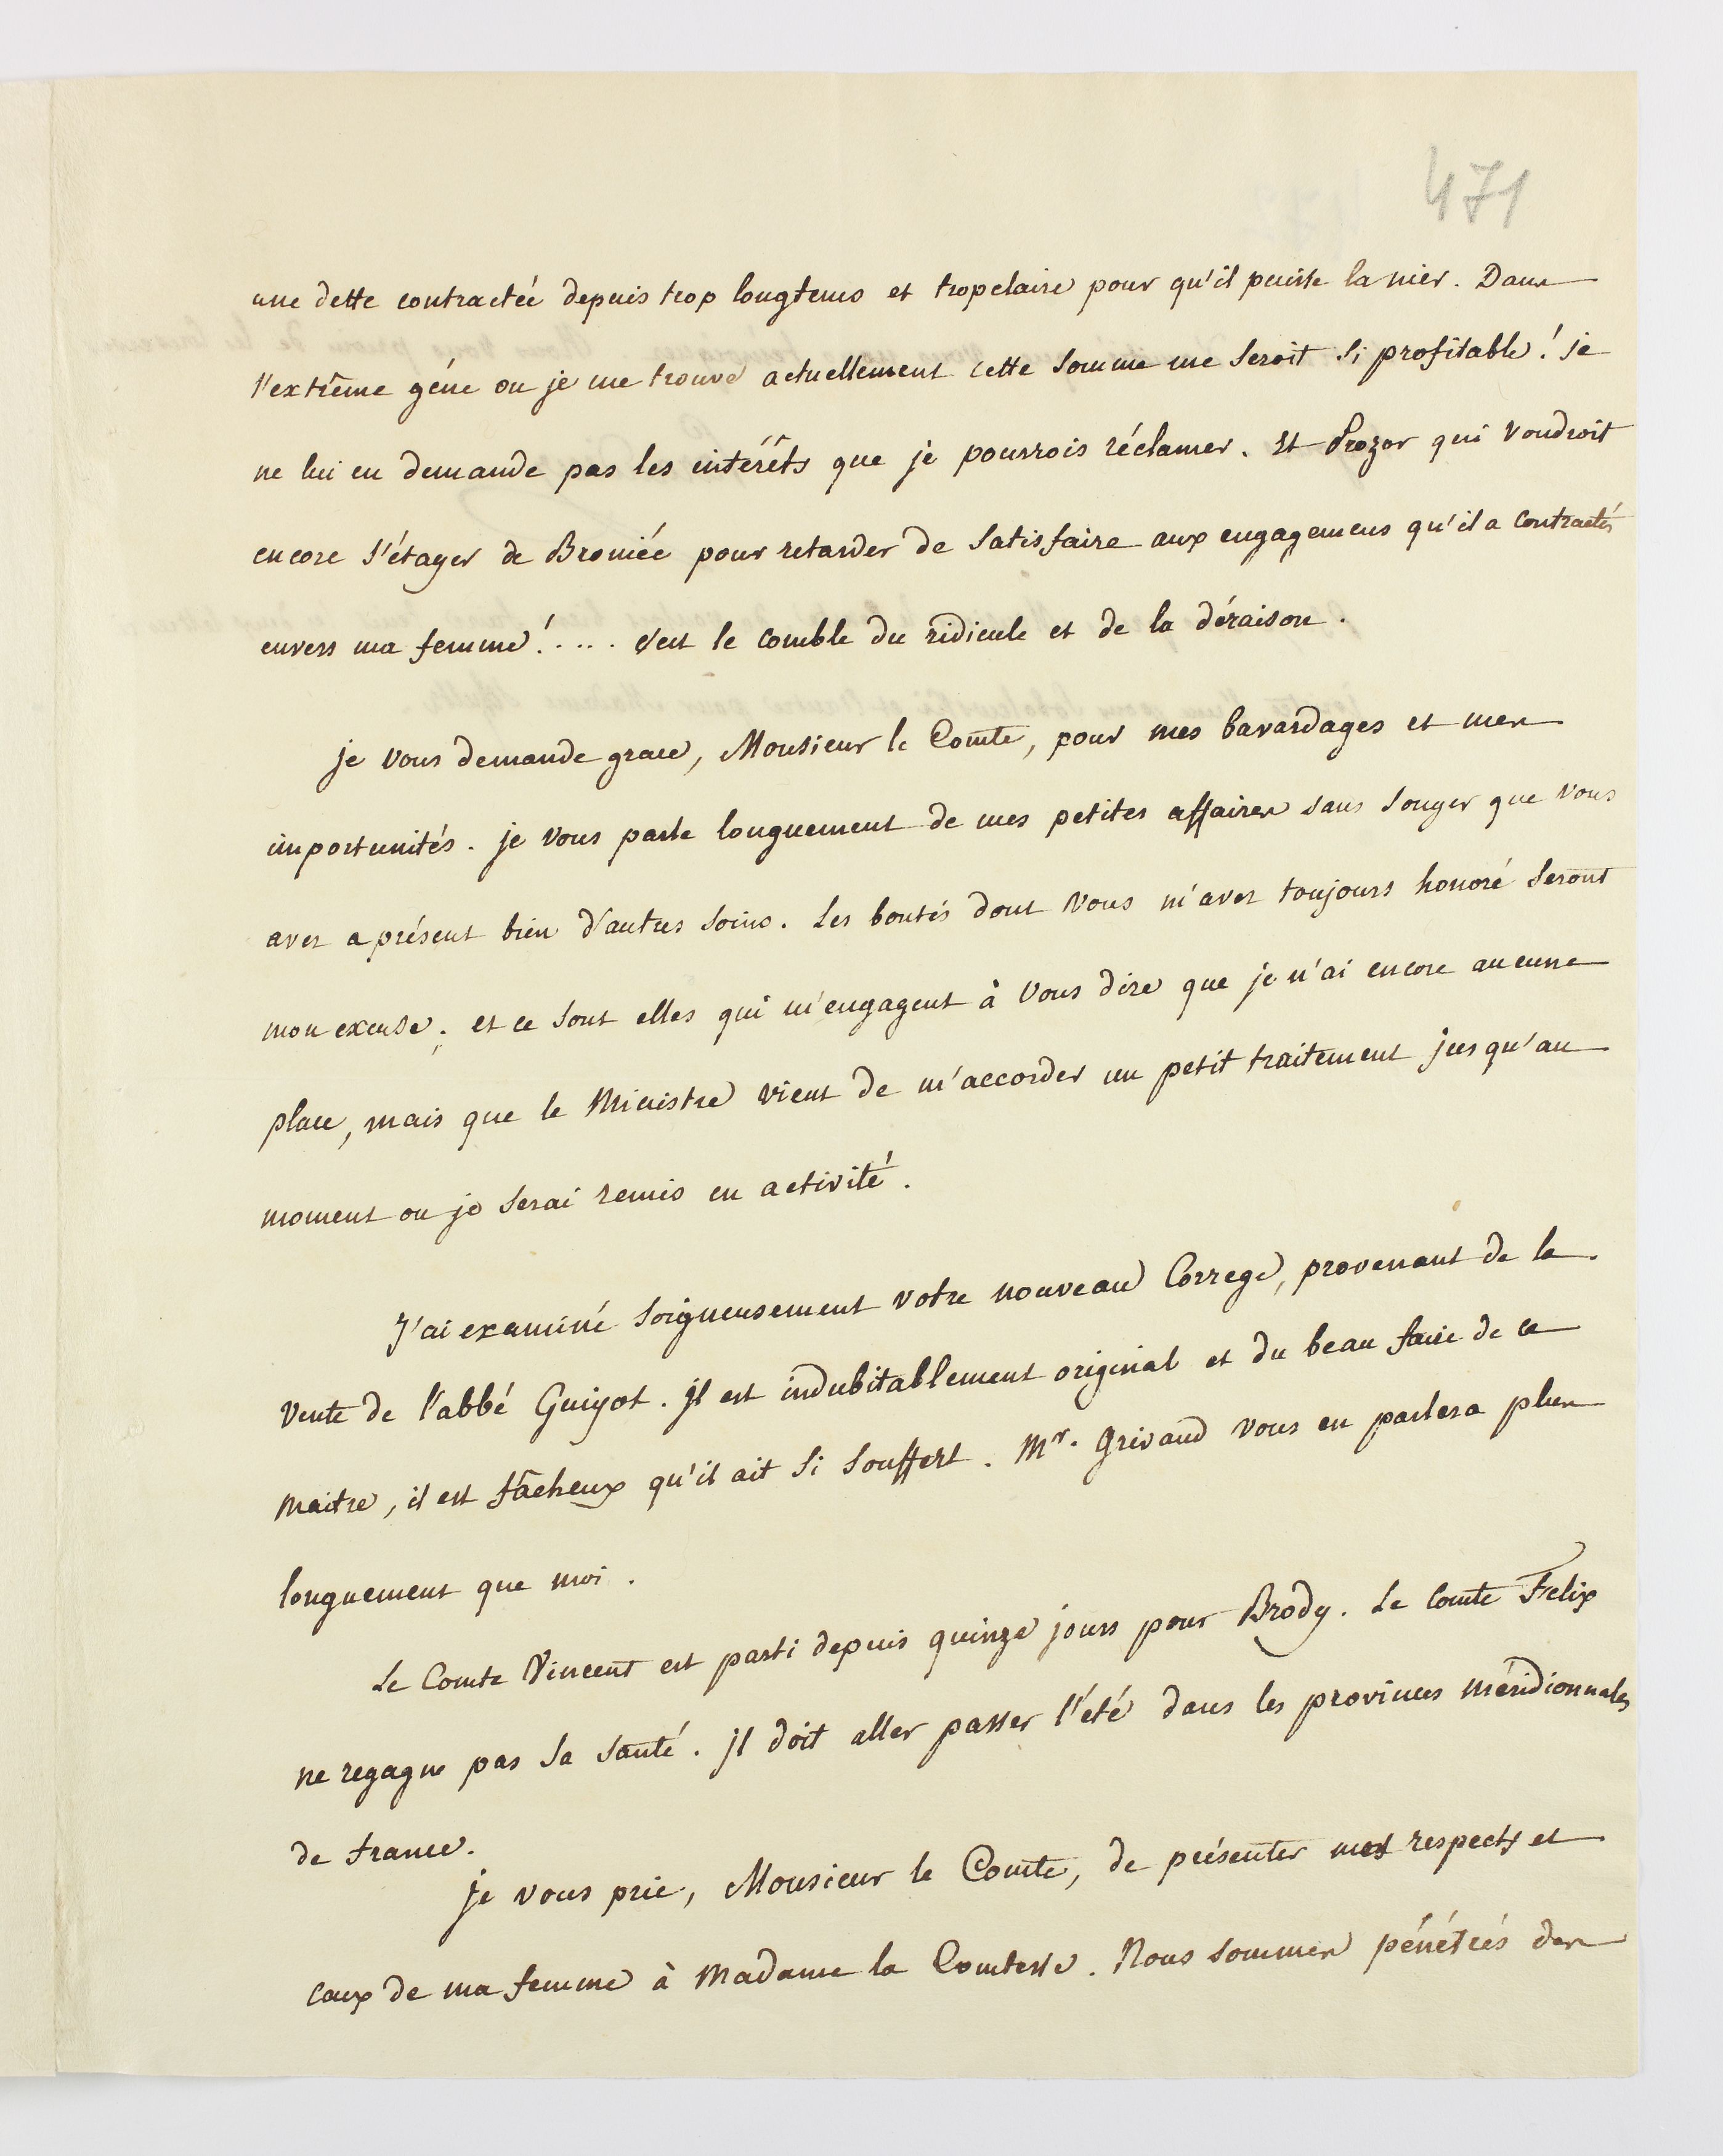 471
une dette contractée depuis trop longtems et trop claire pour qu'il puisse la nier. Dans
l'extrême gêne ou je me trouve actuellement cette somme me seroit si profitable! je
ne lui en demande pas les intérêts que je pourrois réclamer. Et Prozor qui voudroit
encore s'étayer de Broniée pour retarder de satisfaire aux engagemens qu'il a contractés
envers ma femme!..... c'est le comble du ridicule et de la déraison.
je vous demande grace, Monsieur le Comte, pour mes bavardages et mes
importunités. je vous parle longuement de mes petites affaires sans songer que vous
avez a présent bien d'autres soins. Les bontés dont vous m'avez toujours honoré seront
mon excuse; et ce sont elles qui m'engagent à vous dire que je n'ai encore aucune
place, mais que le Ministre vient de m'accorder un petit traitement jusqu'au
moment ou je serai remis en activité.
J'ai examiné soigneusement votre nouveau Correge, provenant de la
vente de l'abbé Guiyot. jl est indubitablement original et du beau faire de ce
maitre, il est fâcheux qu'il ait si souffert. Mr. Grivaud vous en parlera plus
longuement que moi.
Le Comte Vincent est parti depuis quinze jours pour Brody. Le Comte Felix
ne regagne pas sa santé. jl doit aller passer l'été dans les provinces méridionnales
de france.
je vous prie, Monsieur le Comte, de présenter mes respects et
ceux de ma femme à Madame la Comtesse. Nous sommes pénétrés des